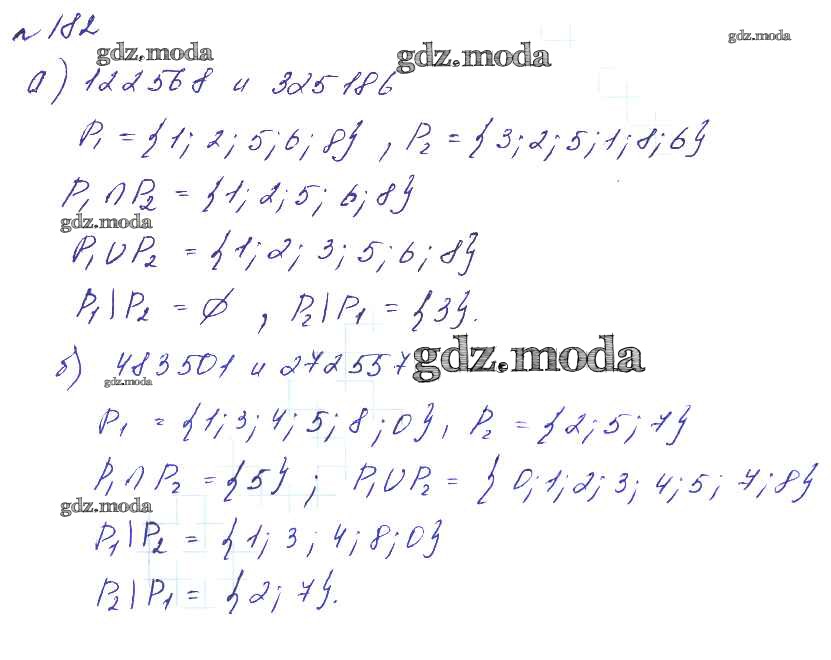 № 182
gdz.moda gdz.moda gdz.moda
а) 122568 и 325186
P₁ = {1; 2; 5; 6; 8} , P₂ = {3; 2; 5; 1; 8; 6}
P₁ ∩ P₂ = {1; 2; 5; 6; 8}
gdz.moda
P₁ ∪ P₂ = {1; 2; 3; 5; 6; 8}
P₁ | P₂ = ∅ , P₂ | P₁ = {3}.
б) 483501 и 272557 gdz.moda
gdz.moda
P₁ = {1; 3; 4; 5; 8; 0}, P₂ = {2; 5; 7}
P₁ ∩ P₂ = {5} ; P₁ ∪ P₂ = {0; 1; 2; 3; 4; 5; 7; 8}
gdz.moda
P₁ | P₂ = {1; 3; 4; 8; 0}
P₂ | P₁ = {2; 7}.